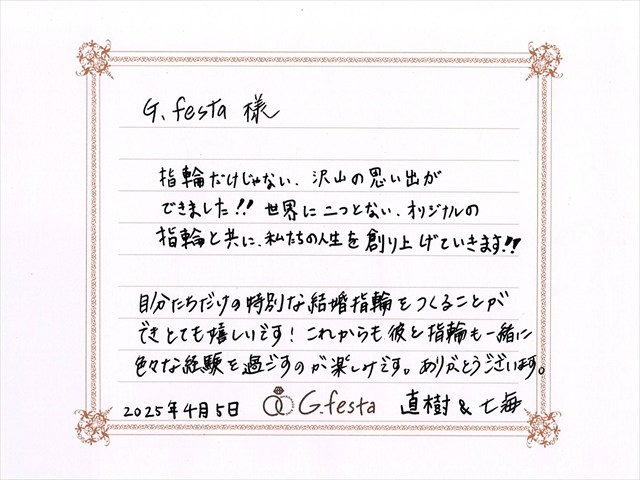 G.festa 様
指輪だけじゃない、沢山の思い出が
できました!! 世界に二つとない、オリジナルの
指輪と共に、私たちの人生を創り上げていきます!!
自分たちだけの特別な結婚指輪をつくることが
できとても嬉しいです! これからも彼と指輪も一緒に
色々な経験を過ごすのが楽しみです。ありがとうございます。
2025年4月5日 G.festa 直樹 & 七海